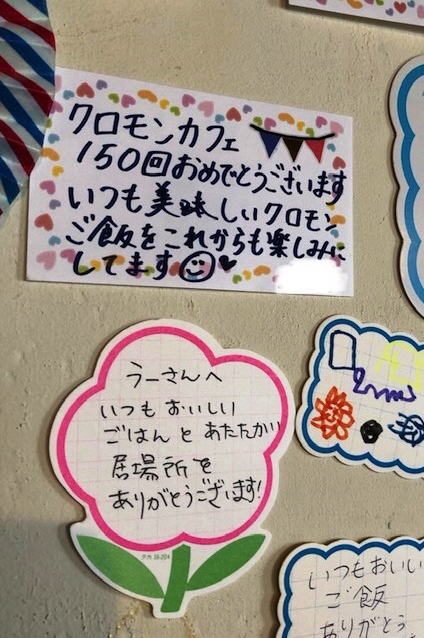 クロモンカフェ
150回おめでとうございます
いつも美味しいクロモン
ご飯をこれからも楽しみに
してます
うーさんへ
いつもおいしい
ごはんとあたたかい
居場所を
ありがとうございます!
タカ 16-204
いつもおいしい
ご飯
ありがとう